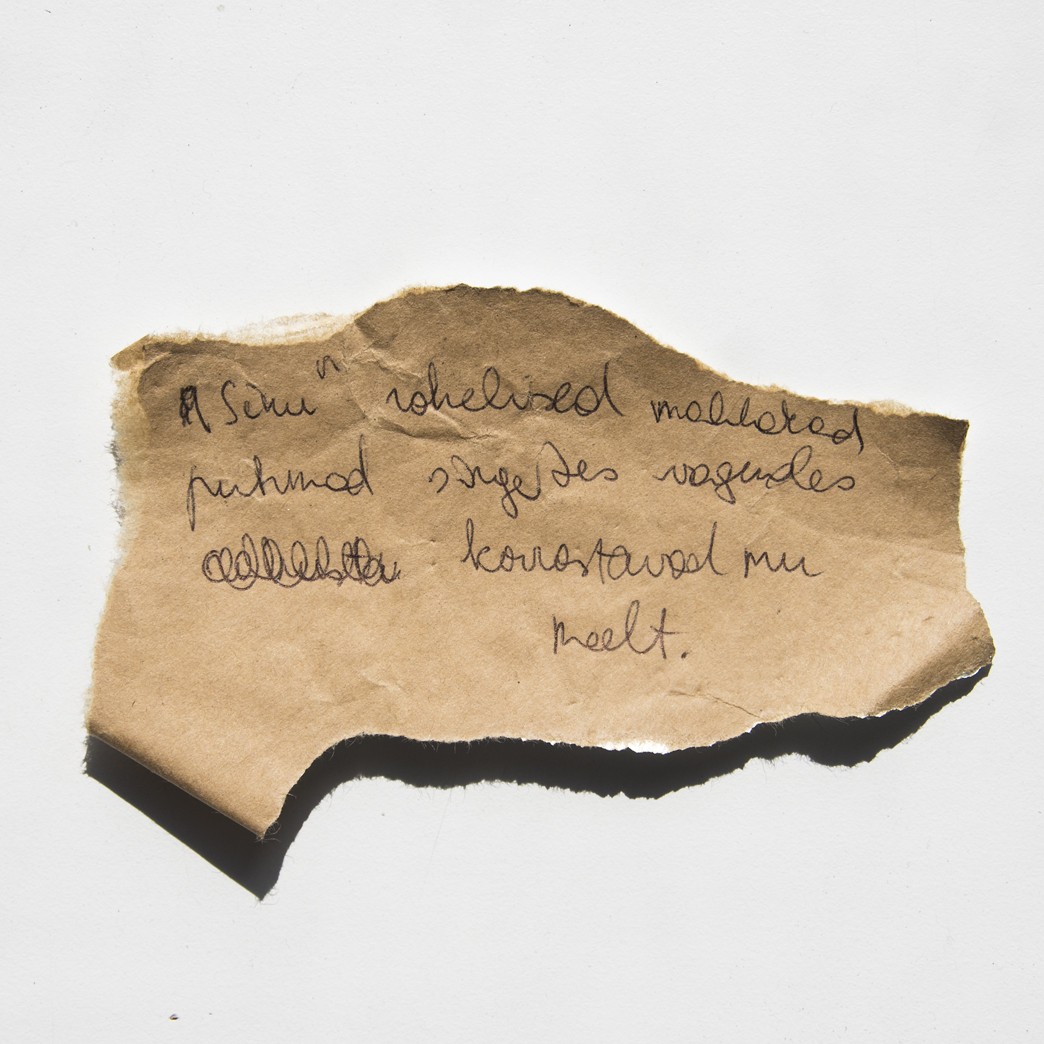 Sinu rohelised mahlakad
puhmad sirgetes vagudes
korrastavad mu
meelt.